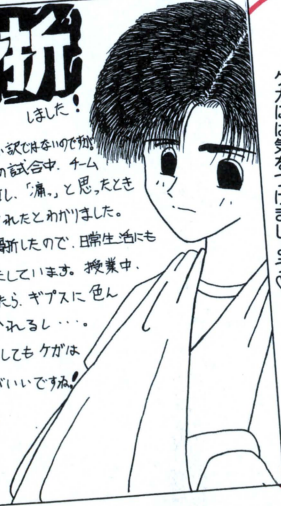 折
しました!
訳ではないので
の試合中、チーム
し、「痛。」と思ったとき
れたとわかりました。
折したので、日常生活にも
たしています。授業中、
たら、ギプスに色ん
かれるし・・・。
しても ケガは
がいいですね!
ケガには気をつけましょう♡